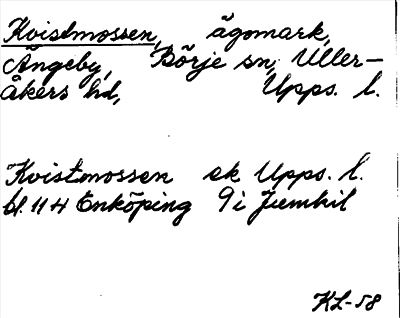 Kvistmossen, ägomark,
Ängeby, Börje sn, Uller-
åkers hd, Upps. l.
Kvistmossen ek Upps. l.
bl. 114 Enköping 9i Jumkil
KL-58